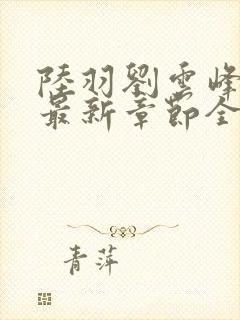 陸羽劉雲峰
最新章節全
青萍